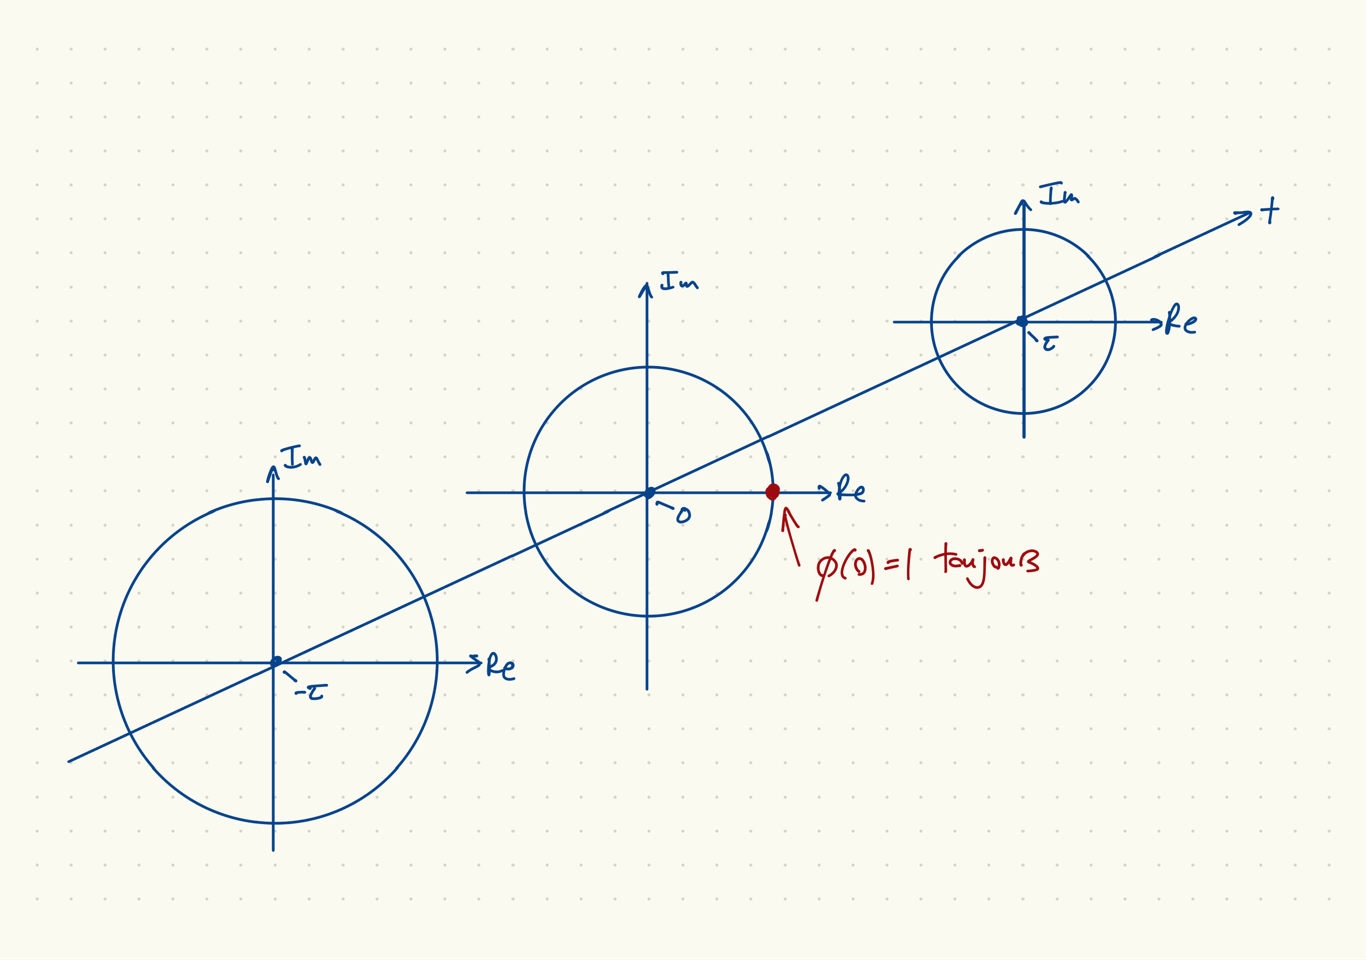 Im
t
Re
τ
Im
Re
0
φ(0)=1 toujours
Im
Re
-τ